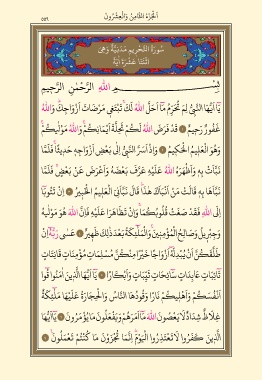 اَلْجُزْءُ الثَّامِنُ وَالْعِشْرُونَ
٥٥٩
سُورَةُ التَّحْرِيمِ مَدَنِيَّةٌ وَهِيَ
اثْنَتَا عَشْرَةَ اٰيَةً
بِسْمِ اللهِ الرَّحْمٰنِ الرَّحِيمِ
يَا اَيُّهَا النَّبِيُّ لِمَ تُحَرِّمُ مَا اَحَلَّ اللهُ لَكَ تَبْتَغِي مَرْضَاتَ اَزْوَاجِكَ وَاللهُ
غَفُورٌ رَحِيمٌ ١ قَدْ فَرَضَ اللهُ لَكُمْ تَحِلَّةَ اَيْمَانِكُمْ وَاللهُ مَوْلٰيكُمْ
وَهُوَ الْعَلِيمُ الْحَكِيمُ ٢ وَاِذْ اَسَرَّ النَّبِيُّ اِلٰى بَعْضِ اَزْوَاجِهِ حَدِيثًا فَلَمَّا
نَبَّاَتْ بِهِ وَاَظْهَرَهُ اللهُ عَلَيْهِ عَرَّفَ بَعْضَهُ وَاَعْرَضَ عَنْ بَعْضٍ فَلَمَّا
نَبَّاَهَا بِهِ قَالَتْ مَنْ اَنْبَاَكَ هٰذَا قَالَ نَبَّاَنِيَ الْعَلِيمُ الْخَبِيرُ ٣ اِنْ تَتُوبَا
اِلَى اللهِ فَقَدْ صَغَتْ قُلُوبُكُمَا وَاِنْ تَظَاهَرَا عَلَيْهِ فَاِنَّ اللهَ هُوَ مَوْلٰيهُ
وَجِبْرِيلُ وَصَالِحُ الْمُؤْمِنِينَ وَالْمَلٰئِكَةُ بَعْدَ ذٰلِكَ ظَهِيرٌ ٤ عَسٰى رَبُّهُ اِنْ
طَلَّقَكُنَّ اَنْ يُبْدِلَهُ اَزْوَاجًا خَيْرًا مِنْكُنَّ مُسْلِمَاتٍ مُؤْمِنَاتٍ قَانِتَاتٍ
تَائِبَاتٍ عَابِدَاتٍ سَائِحَاتٍ ثَيِّبَاتٍ وَاَبْكَارًا ٥ يَا اَيُّهَا الَّذِينَ اٰمَنُوا قُوا
اَنْفُسَكُمْ وَاَهْلِيكُمْ نَارًا وَقُودُهَا النَّاسُ وَالْحِجَارَةُ عَلَيْهَا مَلٰئِكَةٌ
غِلَاظٌ شِدَادٌ لَا يَعْصُونَ اللهَ مَا اَمَرَهُمْ وَيَفْعَلُونَ مَا يُؤْمَرُونَ ٦ يَا اَيُّهَا
الَّذِينَ كَفَرُوا لَا تَعْتَذِرُوا الْيَوْمَ اِنَّمَا تُجْزَوْنَ مَا كُنْتُمْ تَعْمَلُونَ ٧